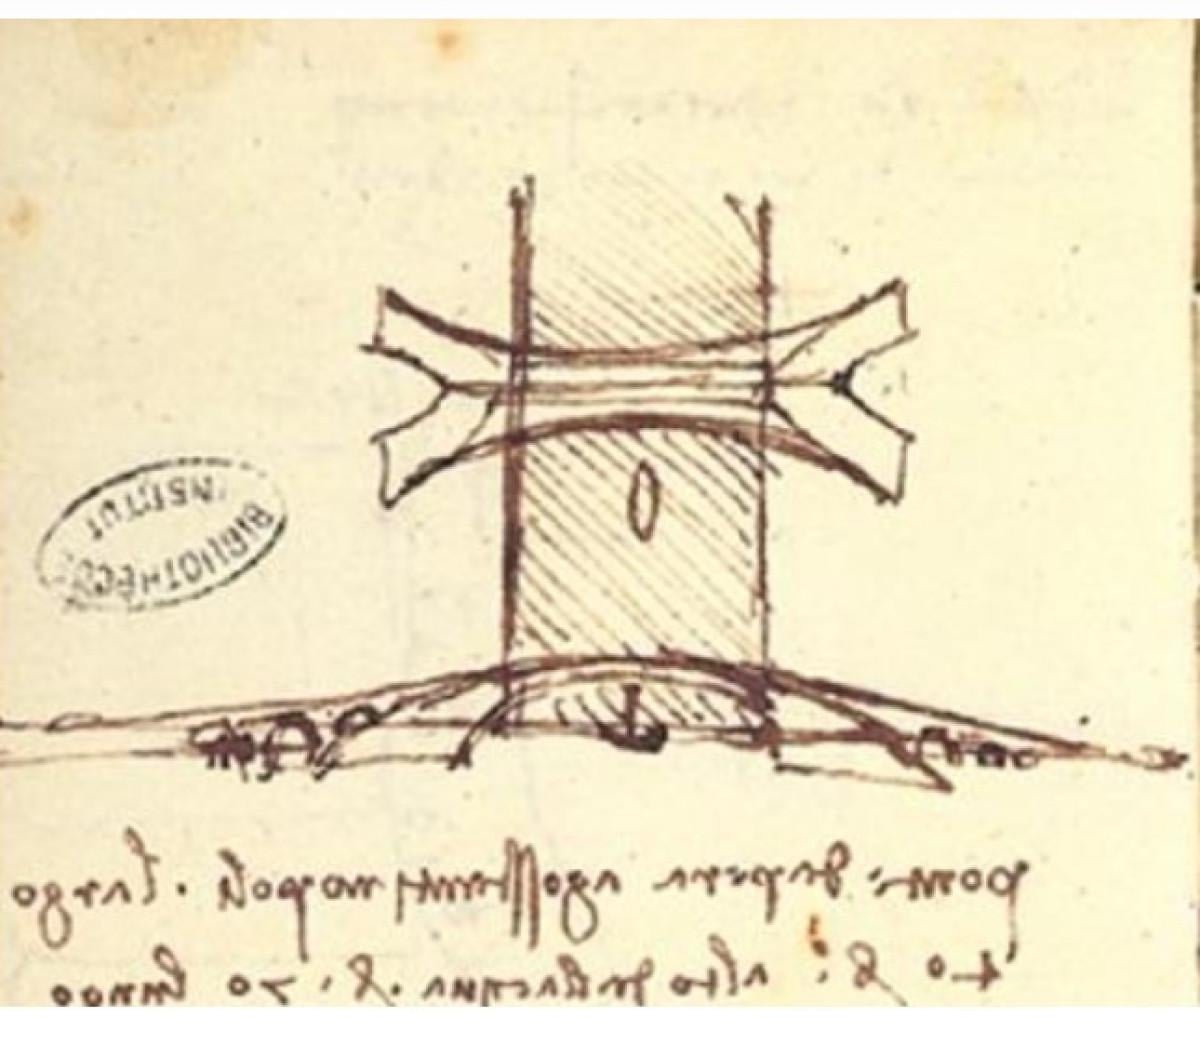 BIBLIOTHÈQUE
INSTITUT
ponte da pera a gosstantinopoli . largo
40 br alto dallacqua br . 70 lungo